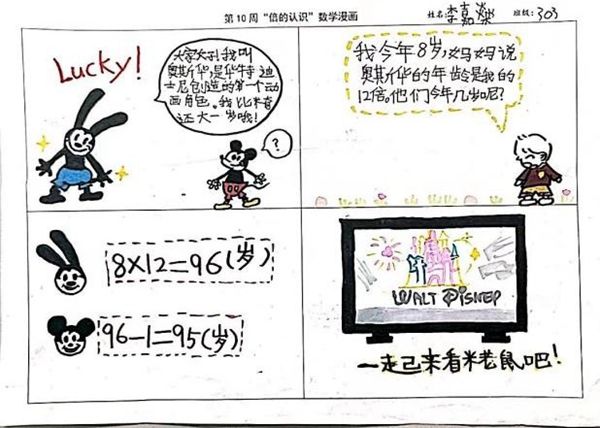 第10周“倍的认识”数学漫画
姓名李嘉燊 班级:303
Lucky!
大家好!我叫
奥斯华,是华特迪
士尼创造的第一个动
画角色。我比米奇
还大一岁哦!
?
我今年8岁,妈妈说
奥斯华的年龄是我的
12倍。他们今年几岁呢?
8×12=96(岁)
96-1=95(岁)
WALT DISNEP
一走己来看米老鼠吧!